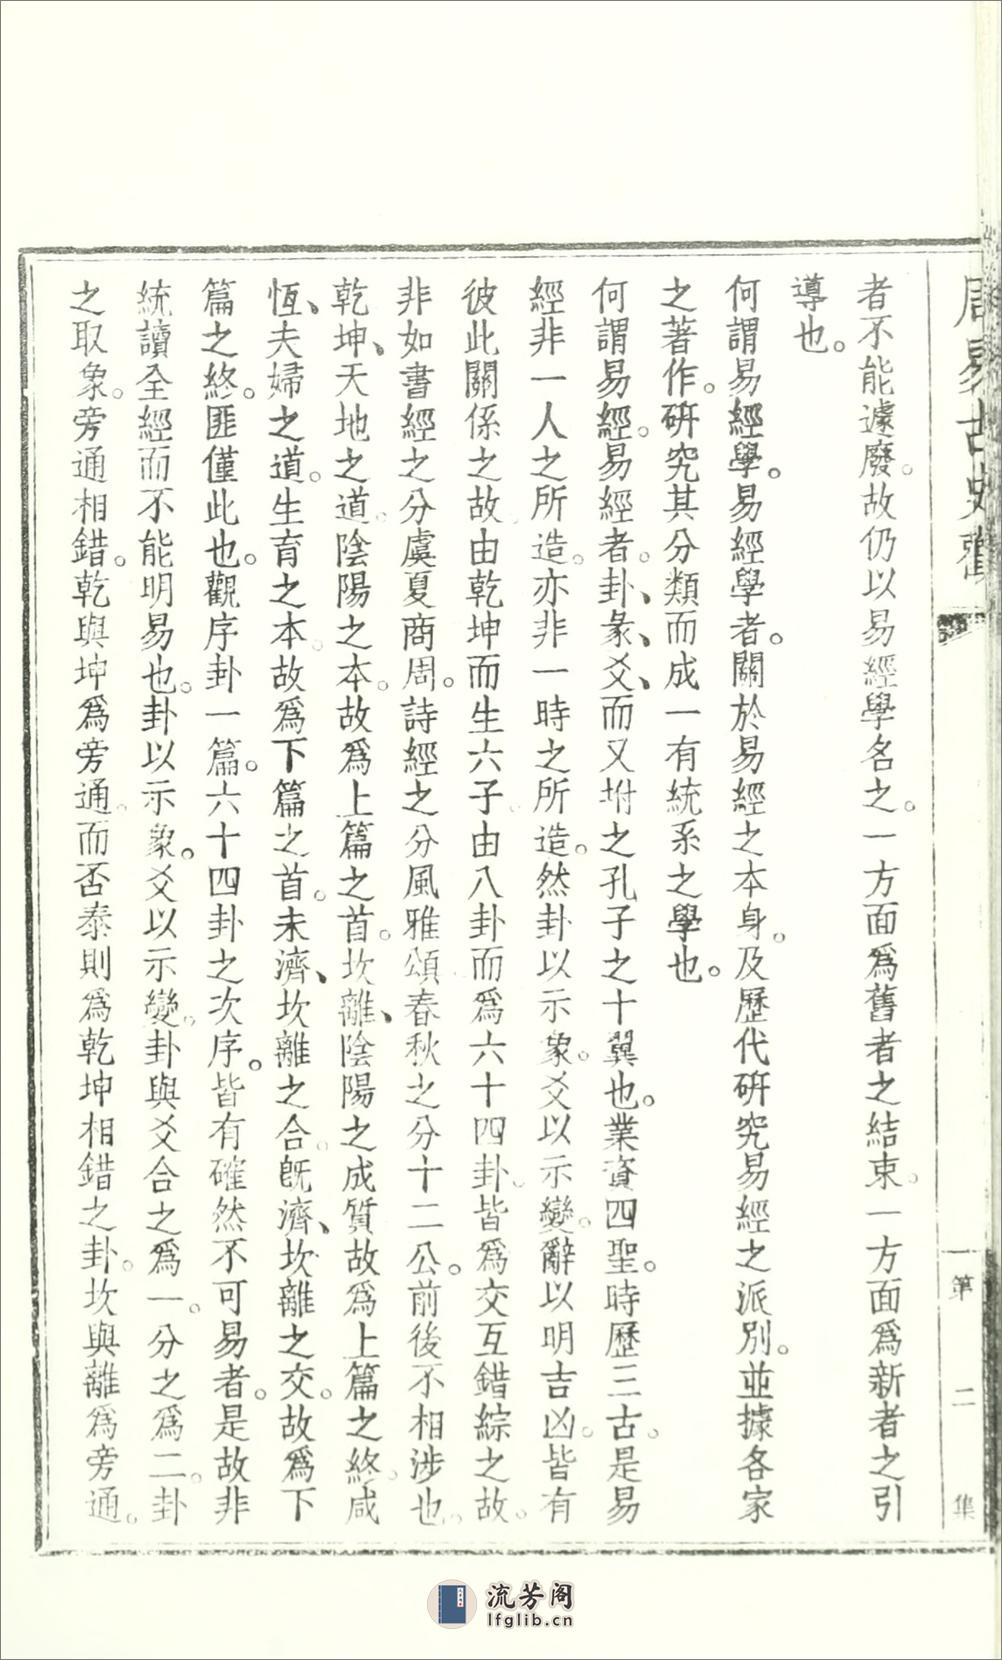 周易古史觀
第二集
者不能遽廢。故仍以易經學名之。一方面爲舊者之結束。一方面爲新者之引
導也。
何謂易經學。易經學者。關於易經之本身。及歷代研究易經之派別。並據各家
之著作。研究其分類而成一有統系之學也。
何謂易經。易經者。卦、彖、爻、而又坿之孔子之十翼也。業資四聖。時歷三古。是易
經非一人之所造。亦非一時之所造。然卦以示象。爻以示變。辭以明吉凶。皆有
彼此關係之故。由乾坤而生六子。由八卦而爲六十四卦。皆爲交互錯綜之故。
非如書經之分虞夏商周。詩經之分風雅頌。春秋之分十二公。前後不相涉也。
乾坤、天地之道。陰陽之本。故爲上篇之首。坎離、陰陽之成質。故爲上篇之終。咸
恆、夫婦之道。生育之本。故爲下篇之首。未濟、坎離之合。旣濟、坎離之交。故爲下
篇之終。匪僅此也。觀序卦一篇。六十四卦之次序。皆有確然不可易者。是故非
統讀全經而不能明易也。卦以示象。爻以示變。卦與爻合之爲一。分之爲二。卦
之取象。旁通相錯。乾與坤爲旁通。而否泰則爲乾坤相錯之卦。坎與離爲旁通。
流芳阁
lfglib.cn